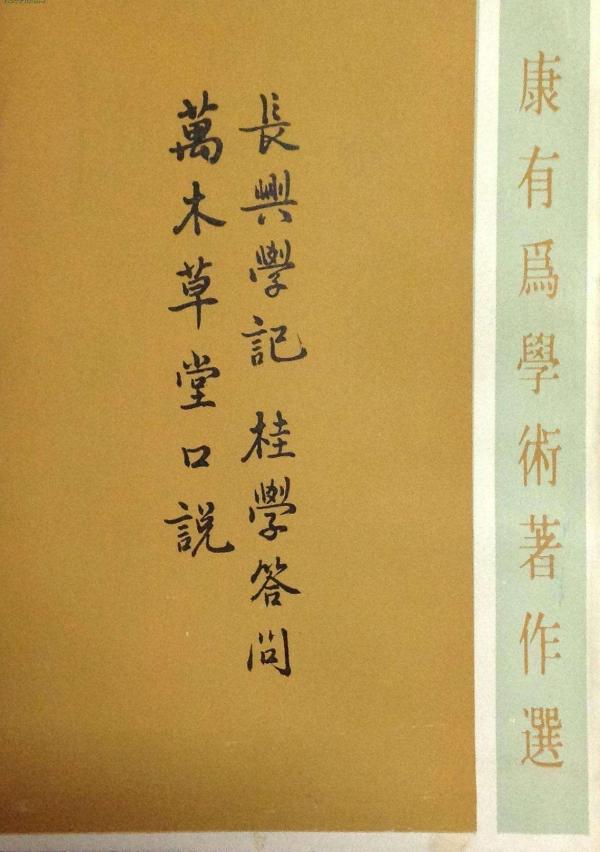 康有爲學術著作選
長興學記 桂學答问
萬木草堂口説